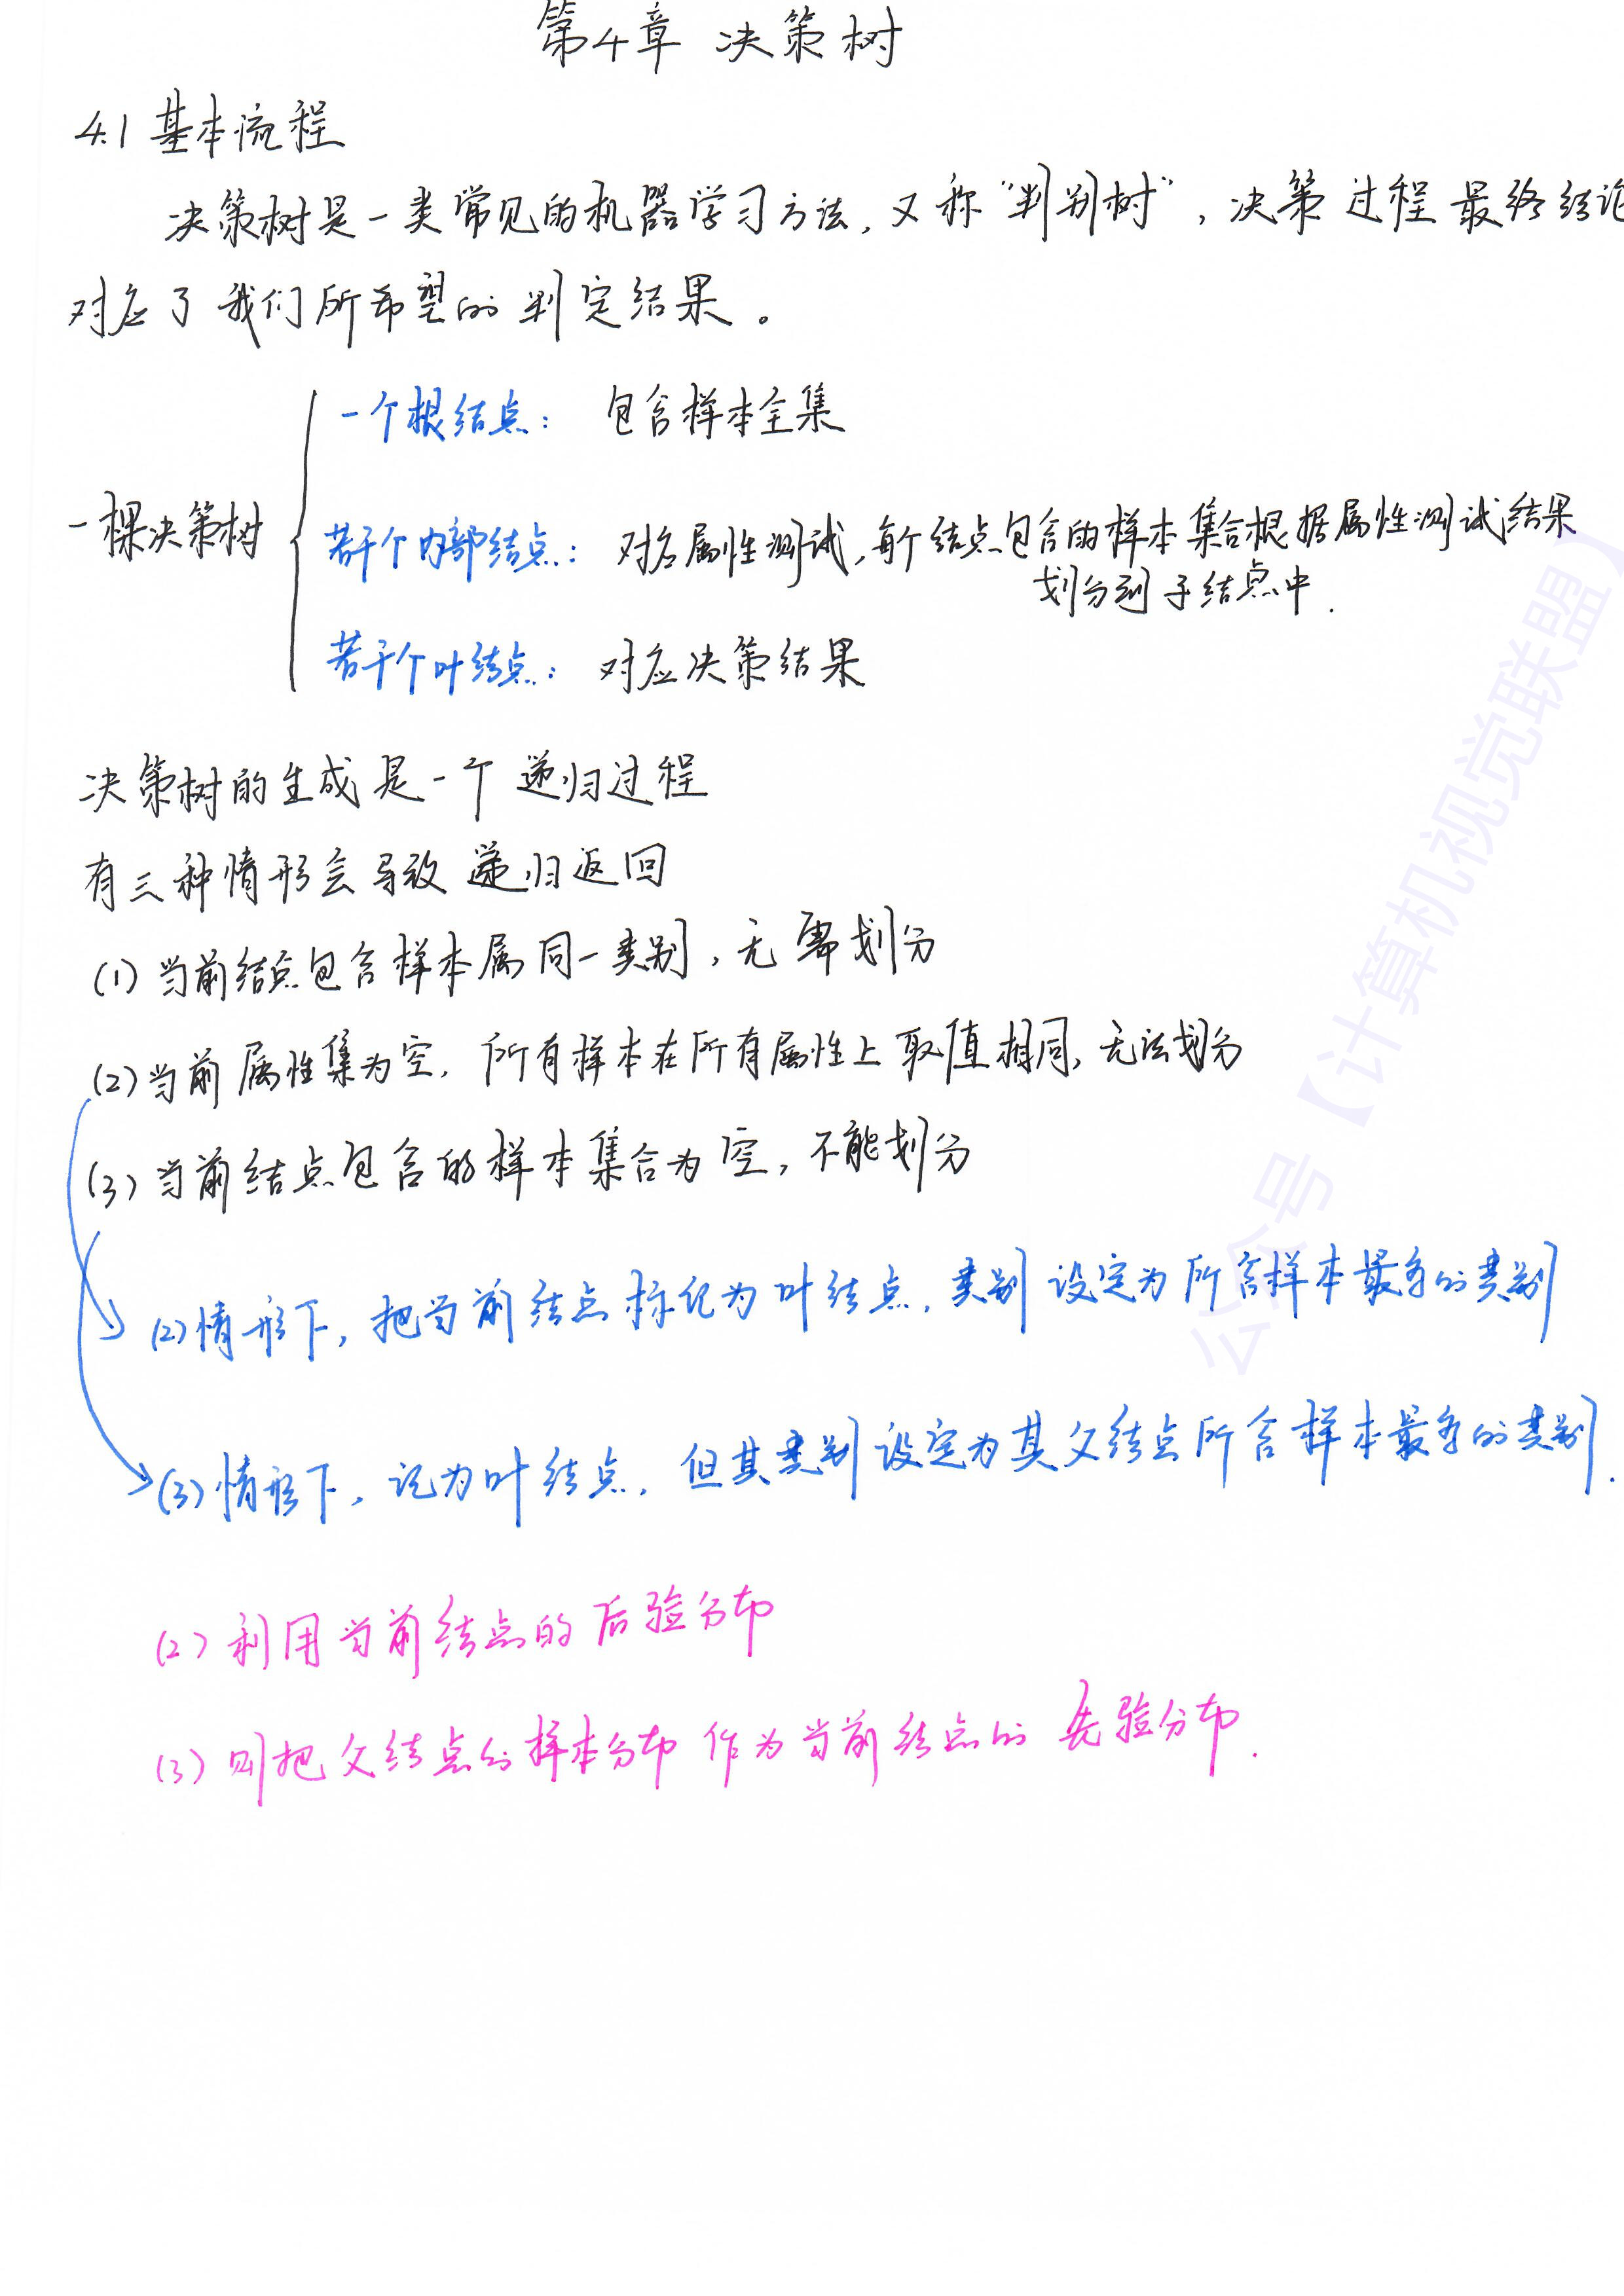 第4章 决策树
4.1 基本流程
决策树是一类常见的机器学习方法, 又称“判别树”, 决策过程最终结论
对应了我们所希望的判定结果。
一个根结点: 包含样本全集
一棵决策树
若干个内部结点: 对应属性测试, 每个结点包含的样本集合根据属性测试结果
划分到子结点中.
若干个叶结点: 对应决策结果
决策树的生成是一个递归过程
有三种情形会导致递归返回
(1) 当前结点包含样本属同一类别, 无需划分
(2) 当前属性集为空, 所有样本在所有属性上取值相同, 无法划分
(3) 当前结点包含的样本集合为空, 不能划分
(2) 情形下, 把当前结点标记为叶结点, 类别设定为所含样本最多的类别
(3) 情形下, 记为叶结点, 但其类别设定为其父结点所含样本最多的类别.
(2) 利用当前结点的后验分布
(3) 则把父结点的样本分布作为当前结点的先验分布.
公众号【计算机视觉联盟】